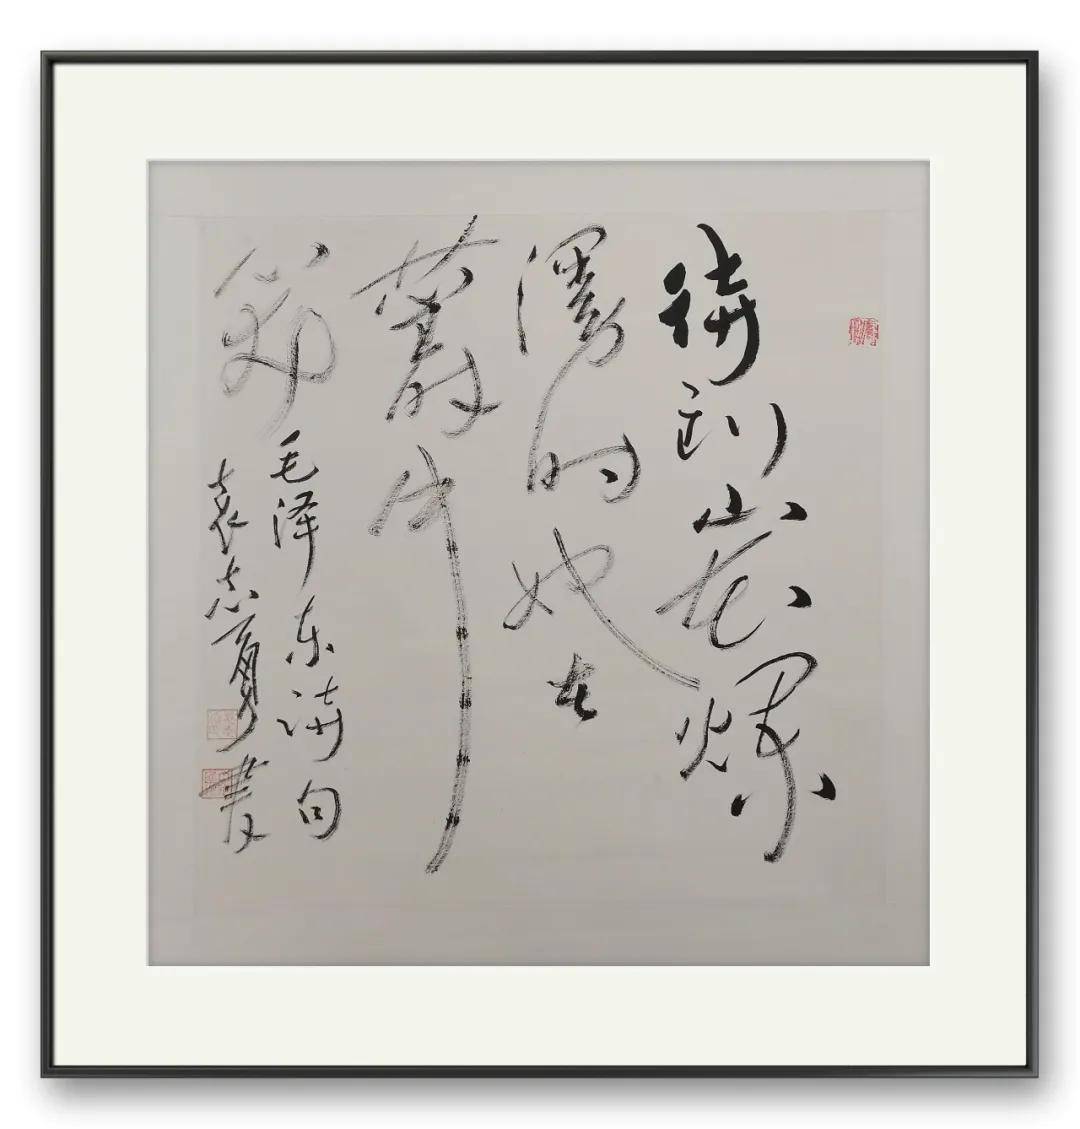 待到山花爛
漫时她在
叢中
笑
毛泽东诗句
袁志勇書